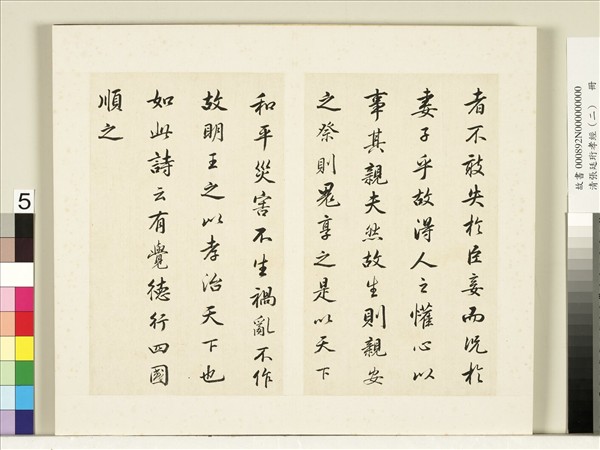 者不敢失於臣妾而況於
妻子乎故得人之懽心以
事其親夫然故生則親安
之祭則鬼享之是以天下
和平災害不生禍亂不作
故明王之以孝治天下也
如此詩云有覺德行四國
順之
故書000892N000000000
清張廷珩孝經(二) 冊
5